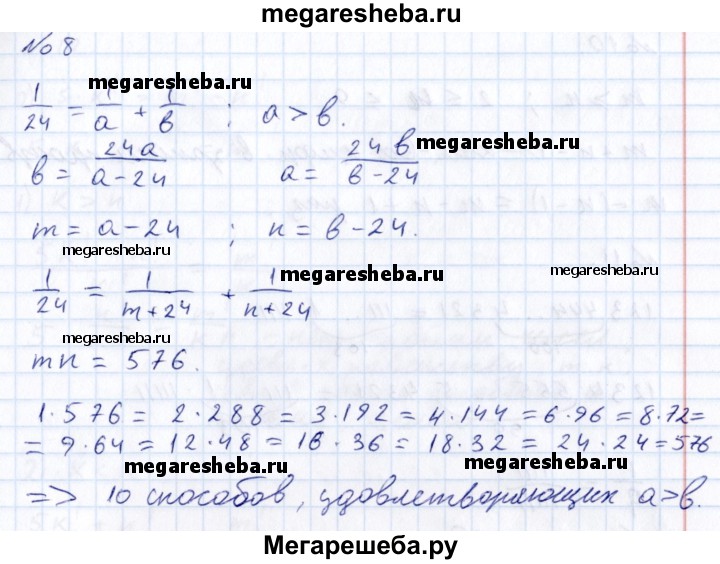 megaresheba.ru
№ 8
megaresheba.ru
1/24 = 1/a + 1/в ; a > в.
megaresheba.ru
в = 24a/a-24 a = 24в/в-24
m = a-24 ; n = в-24.
megaresheba.ru
megaresheba.ru
megaresheba.ru
1/24 = 1/m+24 + 1/n+24
megaresheba.ru
mn = 576.
1·576 = 2·288 = 3·192 = 4·144 = 6·96 = 8·72 =
= 9·64 = 12·48 = 16·36 = 18·32 = 24·24 = 576
megaresheba.ru
megaresheba.ru
=> 10 способов, удовлетворяющих a>в.
Мегарешеба.ру